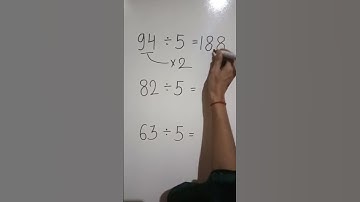 94 ÷ 5 = 18.8
×2
82 ÷ 5 =
63 ÷ 5 =